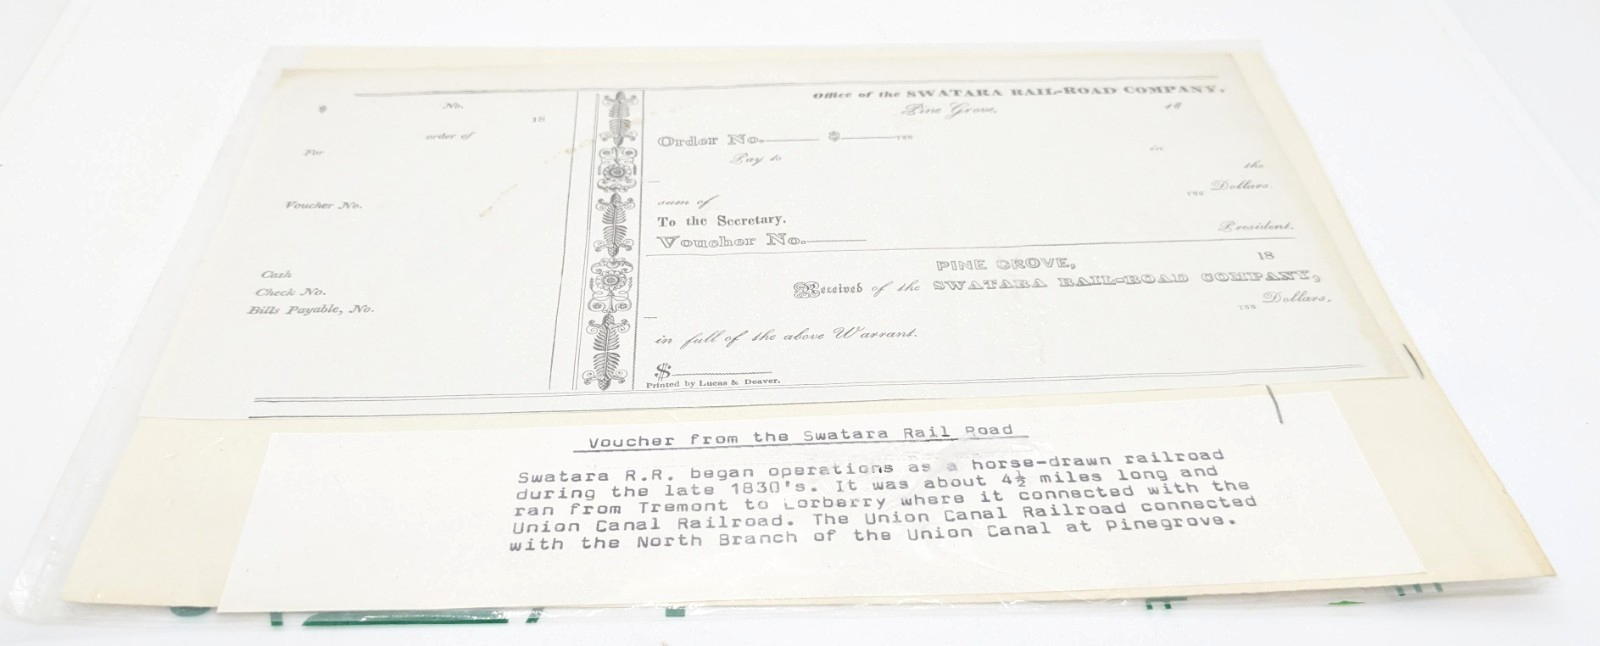 $ No.
18
order of
For
Voucher No.
Cash
Check No.
Bills Payable, No.
Office of the SWATARA RAIL-ROAD COMPANY,
Pine Grove, 18
Order No. $ 100
Pay to in
the
sum of 100 Dollars.
To the Secretary.
President.
Voucher No.
PINE GROVE, 18
Received of the SWATARA RAIL-ROAD COMPANY,
100 Dollars,
in full of the above Warrant.
$
Printed by Lucas & Deaver.
Voucher from the Swatara Rail Road
Swatara R.R. began operations as a horse-drawn railroad
during the late 1830's. It was about 4½ miles long and
ran from Tremont to Lorberry where it connected with the
Union Canal Railroad. The Union Canal Railroad connected
with the North Branch of the Union Canal at Pinegrove.